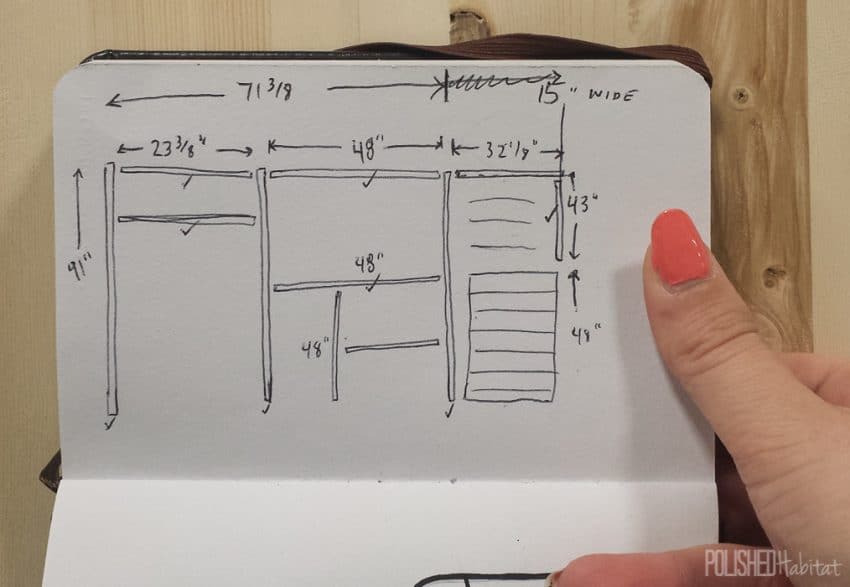 71 3/8
15" WIDE
23 3/8"
48"
32 1/8"
43"
91"
48"
48"
48"
POLISHED Habitat